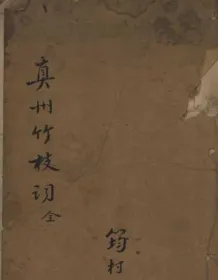 真州竹枝词全
筠村